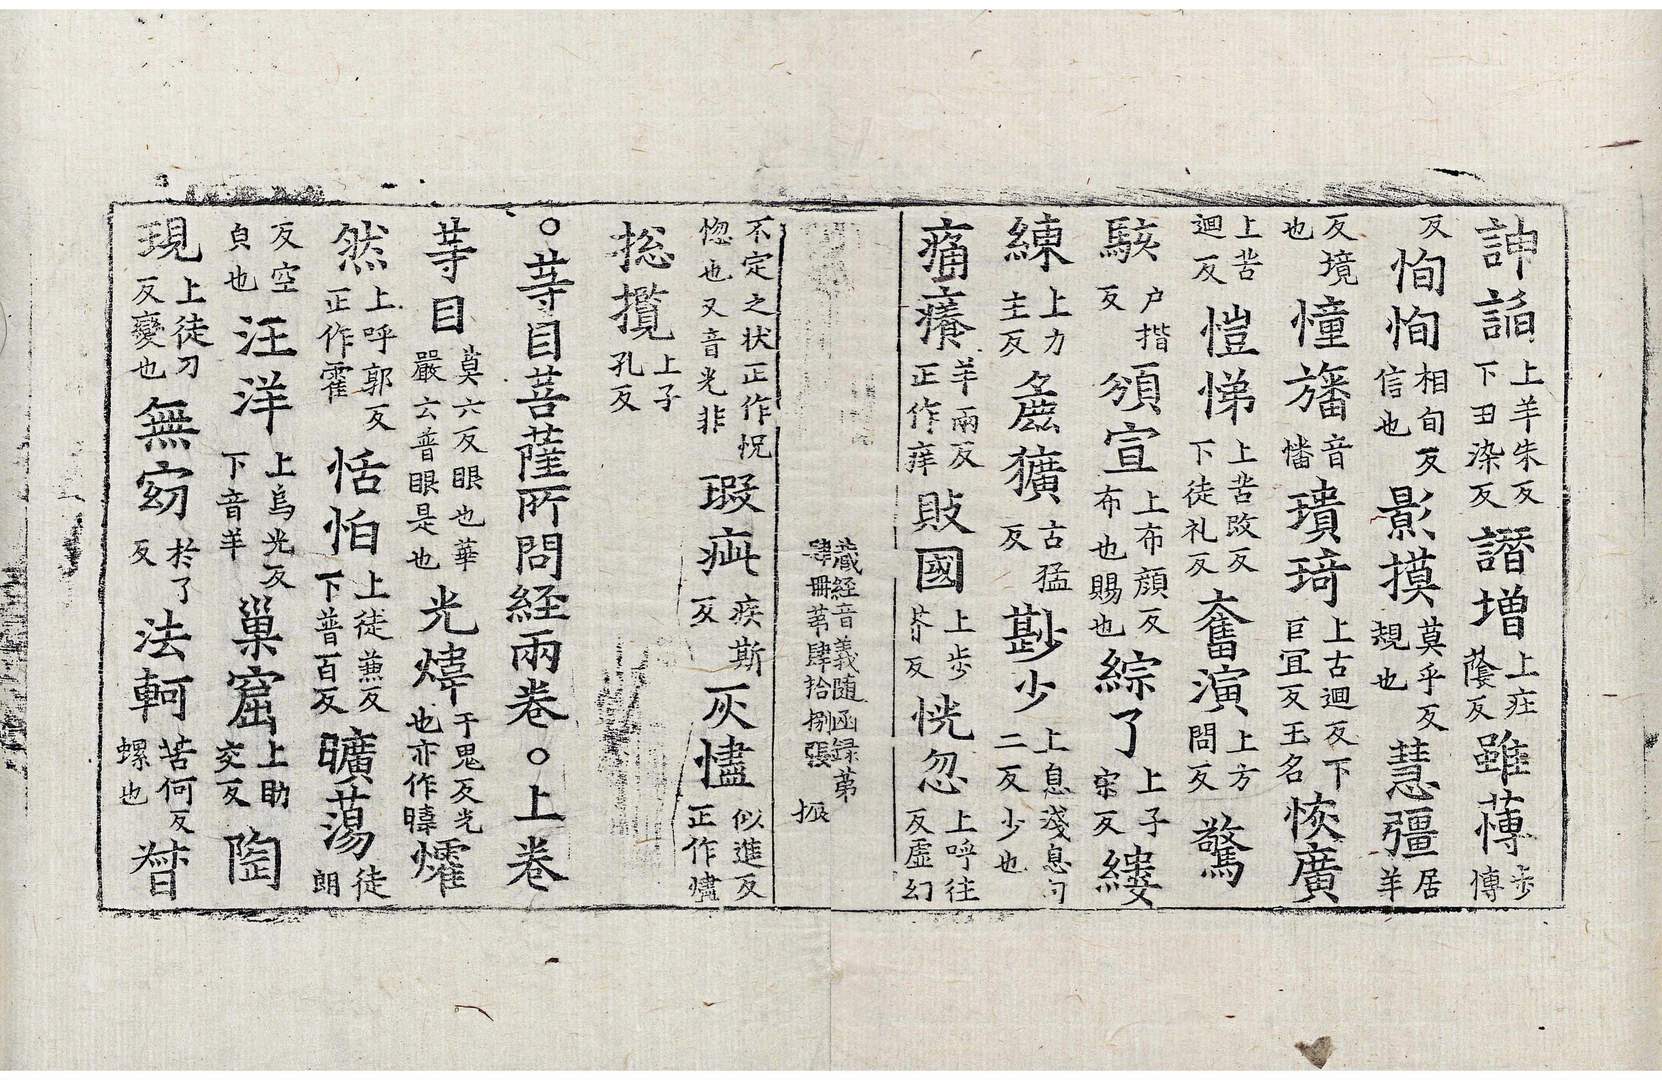 諛諂上羊朱反下丑染反譖增上疰蔭反雖薄步博
反恂恂相旬反信也影摸莫乎反規也慧彊居羊
反境也憧旛音幡璝琦上古迴反下巨宜反玉名恢廣
上苦迴反愷悌上苦改反下徒礼反奮演上方問反驚
駭户揩反頒宣上布顏反布也賜也綜了上子宋反縷
練上力主反麁獷古猛反尠少上息淺息勾二反少也
痛癢羊兩反正作痒敗國上步芥反恍忽上呼往反虛幻
藏經音義随函録第肆冊第肆拾捌張 振
不定之状正作怳惚也又音光非瑕疵疾斯反灰㶳似進反正作燼
揔攬上子孔反
○等目菩薩所問経兩卷○上卷
等目莫六反眼也華嚴云普眼是也光煒于鬼反光也亦作暐燿
然上呼郭反正作霍恬怕上徒蕉反下普百反曠蕩徒朗
反空皃也汪洋上烏光反下音羊巢窟上助交反陶
現上徒刀反變也無窈於了反法軻苦何反螺也朁